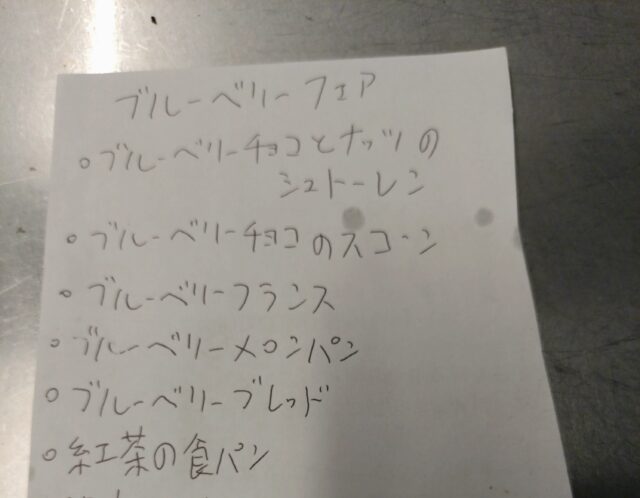 ブルーベリーフェア
○ブルーベリーチョコとナッツの
シュトーレン
○ブルーベリーチョコのスコーン
○ブルーベリーフランス
○ブルーベリーメロンパン
○ブルーベリーブレッド
○紅茶の食パン